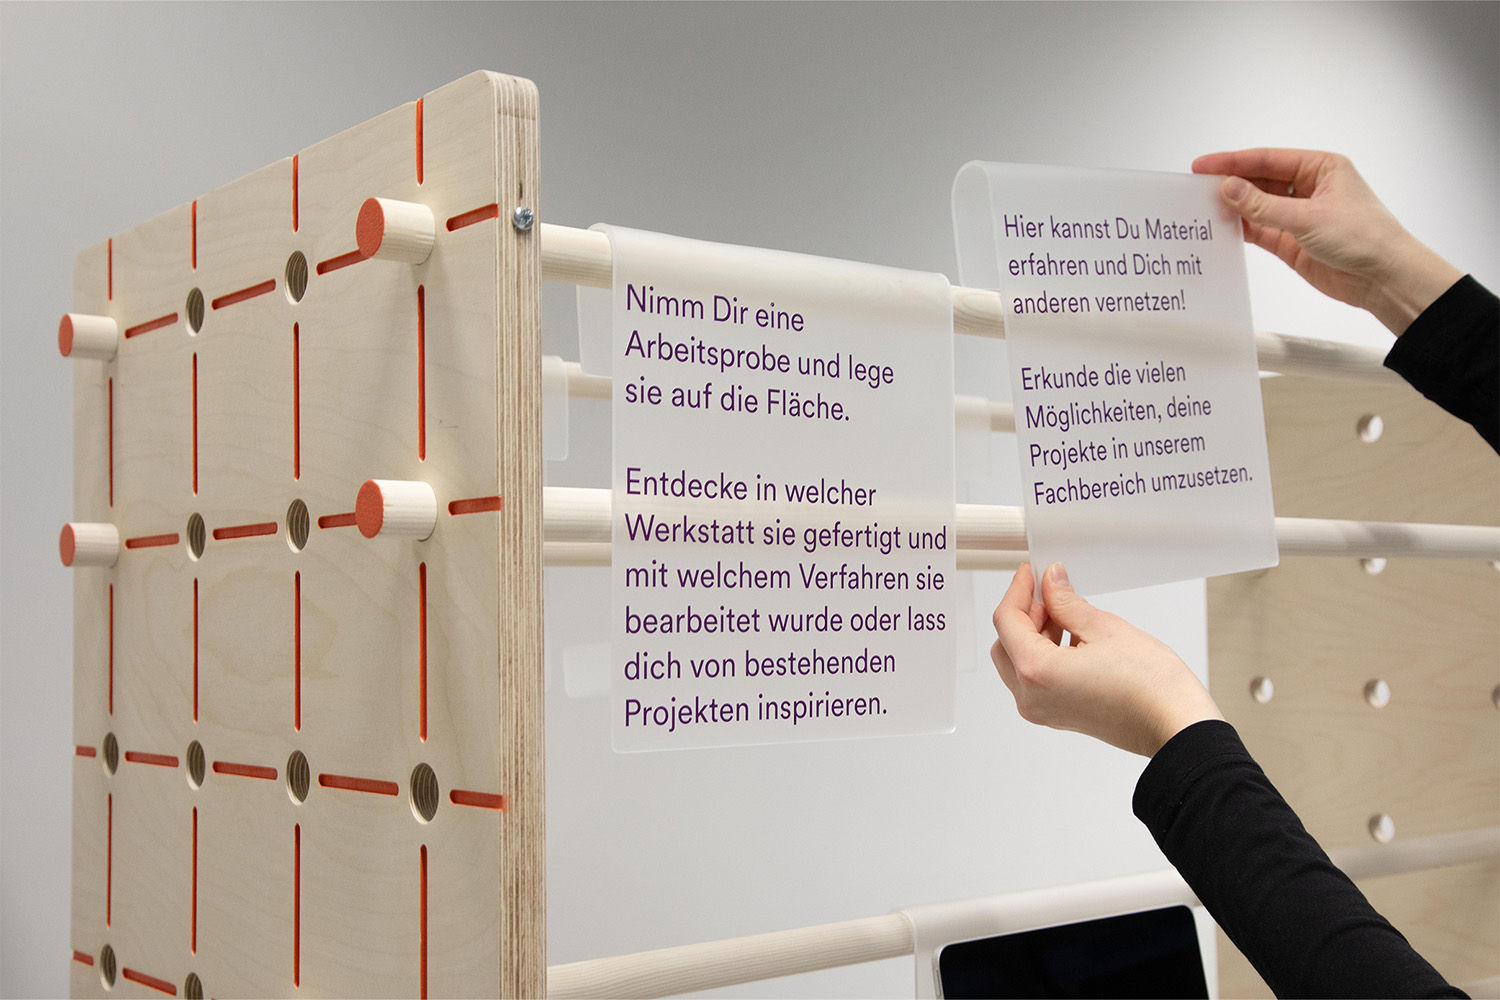 Nimm Dir eine
Arbeitsprobe und lege
sie auf die Fläche.
Entdecke in welcher
Werkstatt sie gefertigt und
mit welchem Verfahren sie
bearbeitet wurde oder lass
dich von bestehenden
Projekten inspirieren.
Hier kannst Du Material
erfahren und Dich mit
anderen vernetzen!
Erkunde die vielen
Möglichkeiten, deine
Projekte in unserem
Fachbereich umzusetzen.